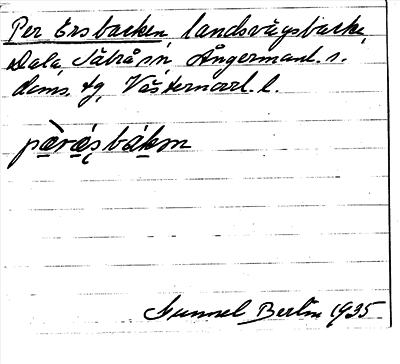 Per Ersbacken, landsvägsbacke,
Dala, Såbrå sn Ångermanl. s.
doms. tg, Västernorrl. l.
pæ̀ræ̀ṣbákən
Gunnel Berlin 1935